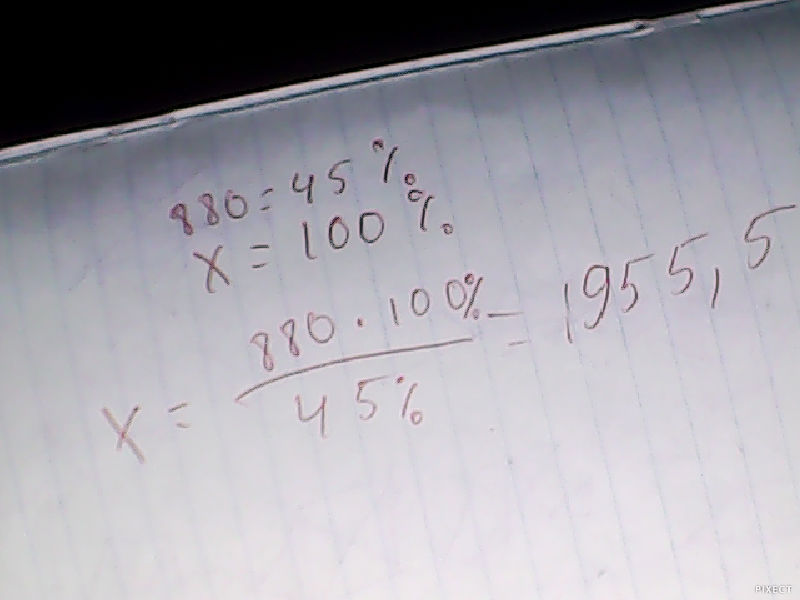 880 = 45%
X = 100%
X = 880 · 100% / 45% = 1955,5
PIXECT